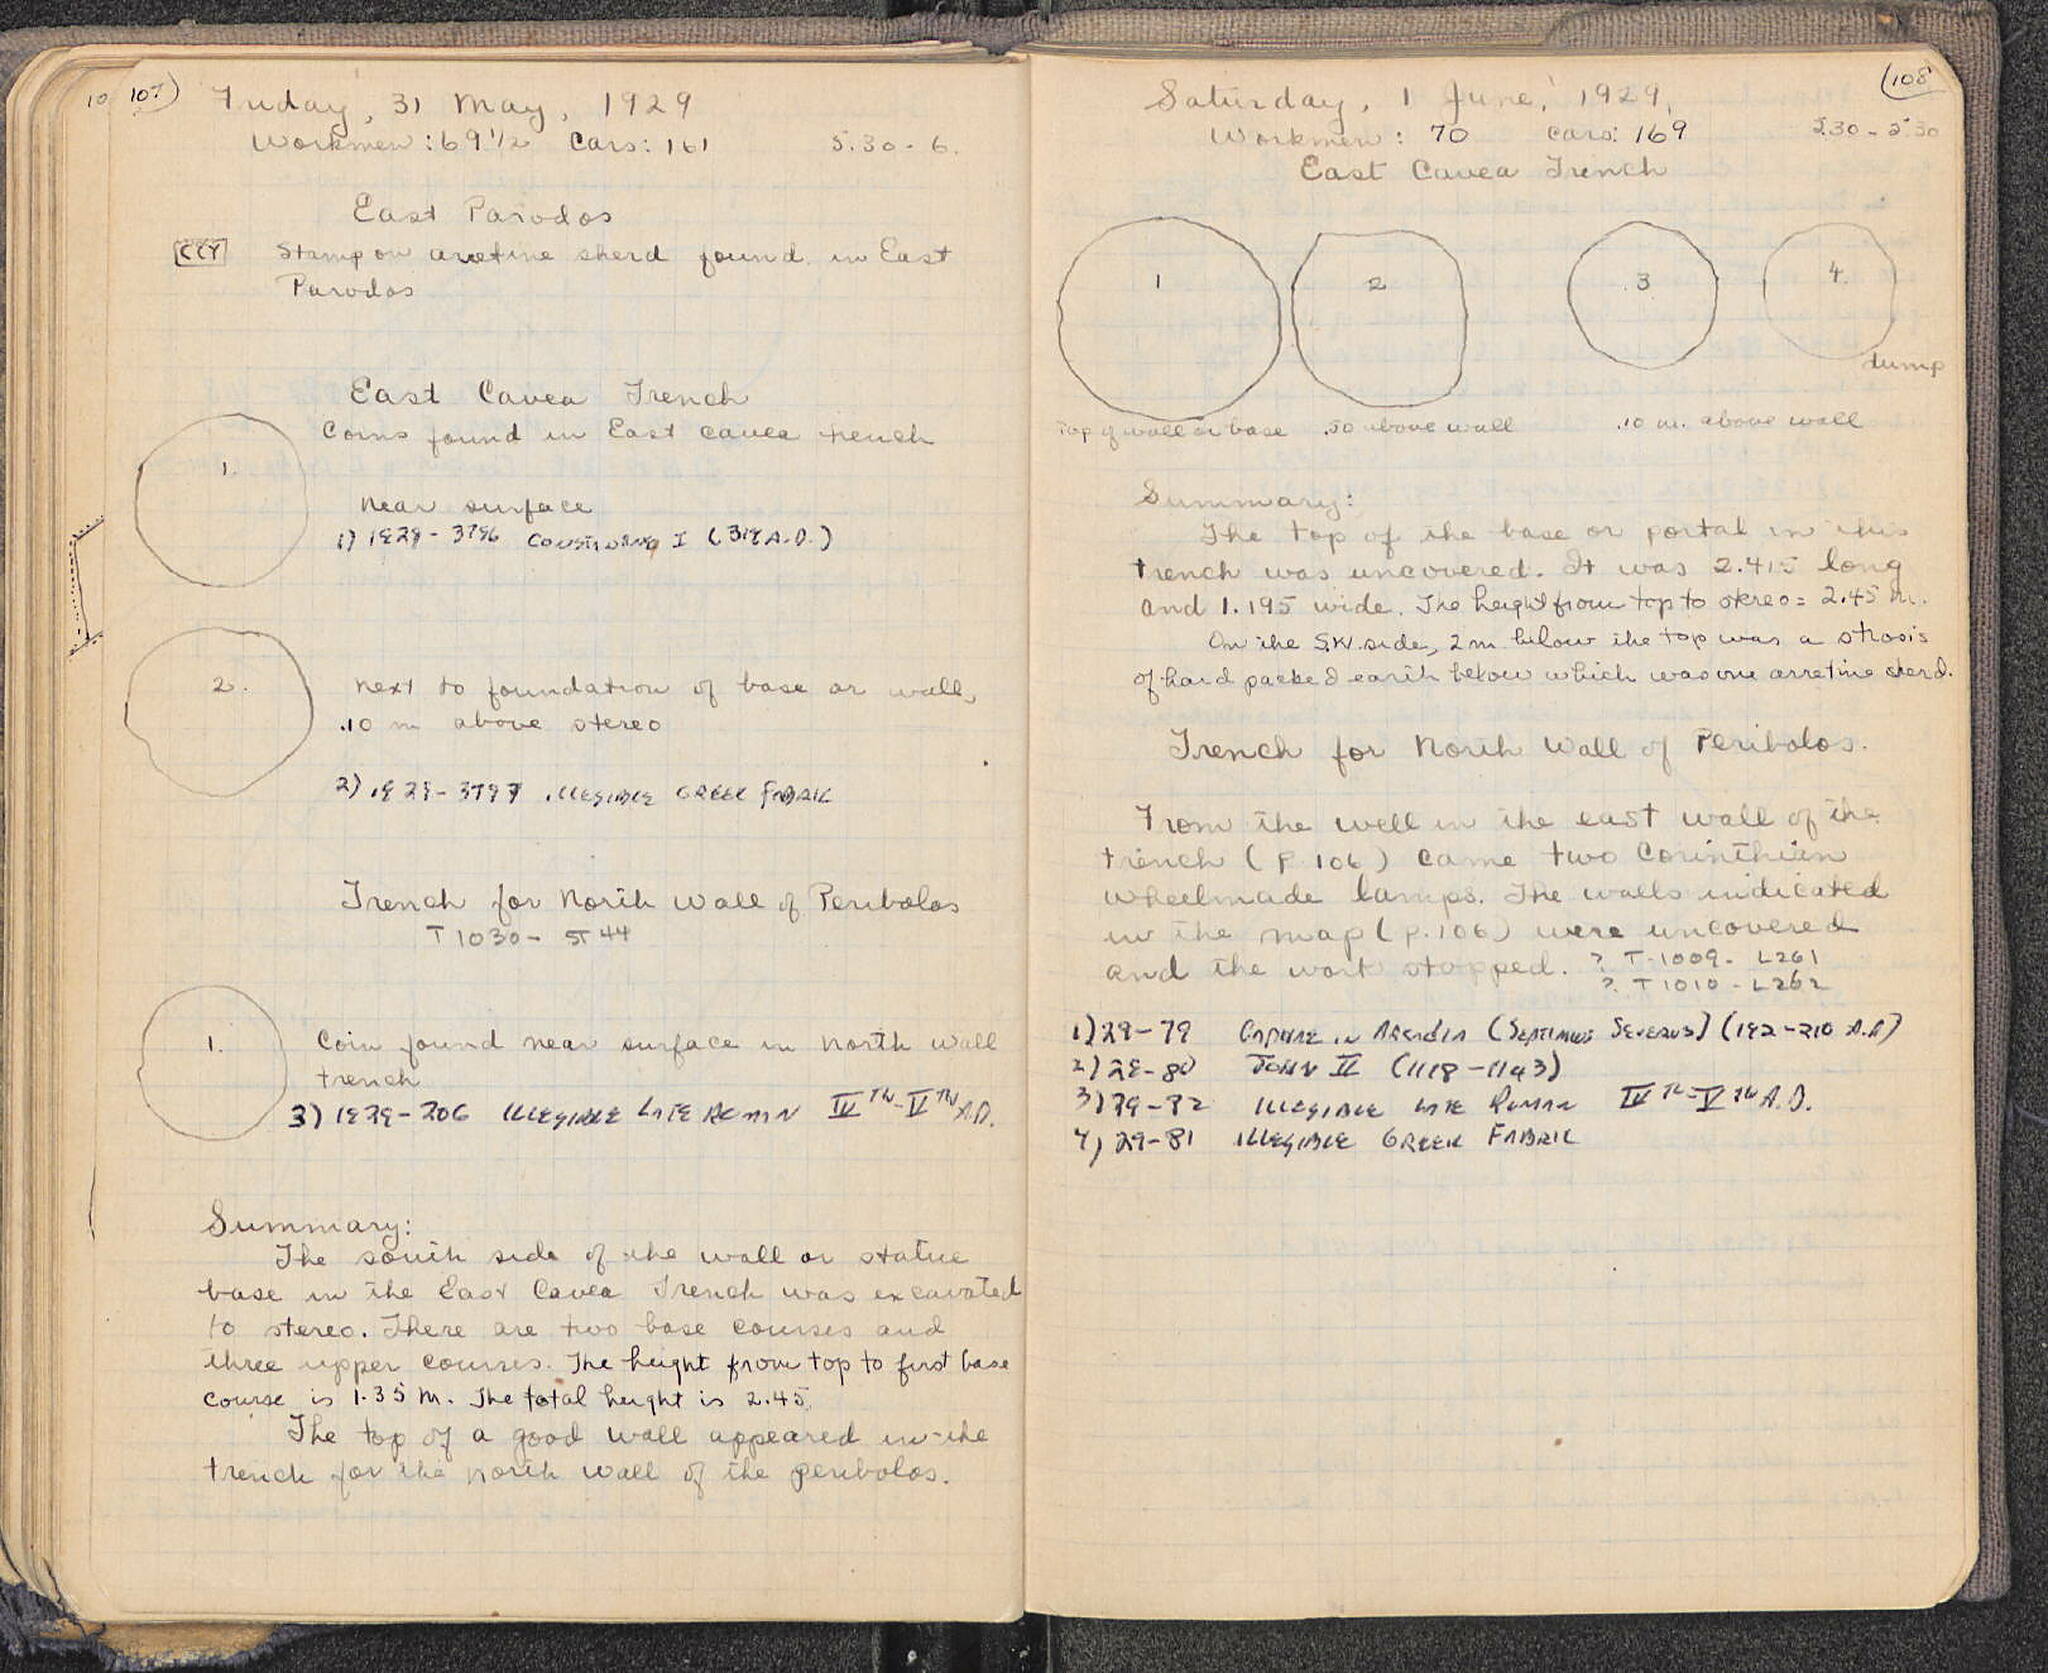 107)
Friday, 31 May, 1929
Workmen: 69 1/2 Cars: 161 5.30 - 6.
East Parodos
CCY Stamp on arretine sherd found in East
Parodos
East Cavea Trench
Coins found in East cavea trench
1.
Near surface
1) 1929 - 3796 Constantine I (317 A.D.)
2. Next to foundation of base or wall,
.10 m above stereo
2) 1929 - 3797 Illegible Greek Fabric
Trench for North Wall of Peribolos
T 1030 - ST 44
1. Coin found near surface in North Wall
trench
3) 1929 - 206 Illegible Late Roman IV TH - V TH A.D.
Summary:
The south side of the wall or statue
base in the East Cavea Trench was excavated
to stereo. There are two base courses and
three upper courses. The height from top to first base
course is 1.35 m. The total height is 2.45.
The top of a good wall appeared in the
trench for the north wall of the peribolos.
(108
Saturday, 1 June, 1929,
Workmen: 70 Cars: 169 5.30 - 5.30
East Cavea Trench
1 2 3 4.
dump
Top of wall or base .50 above wall .10 m. above wall
Summary:
The top of the base or portal in this
trench was uncovered. It was 2.415 long
and 1.195 wide. The height from top to stereo = 2.45 m.
On the S.W. side, 2 m below the top was a strosis
of hard packed earth below which was one arretine sherd.
Trench for North Wall of Peribolos.
From the well in the east wall of the
trench (p. 106) came two Corinthian
wheelmade lamps. The walls indicated
in the map (p. 106) were uncovered
and the work stopped. ? T-1009 - L261
? T 1010 - L262
1) 29-79 Caphyae in Arcadia (Septimius Severus) (192-210 A.D)
2) 29-80 John II (1118-1143)
3) 29-82 Illegible Late Roman IV TH - V TH A.D.
4) 29-81 Illegible Greek Fabric